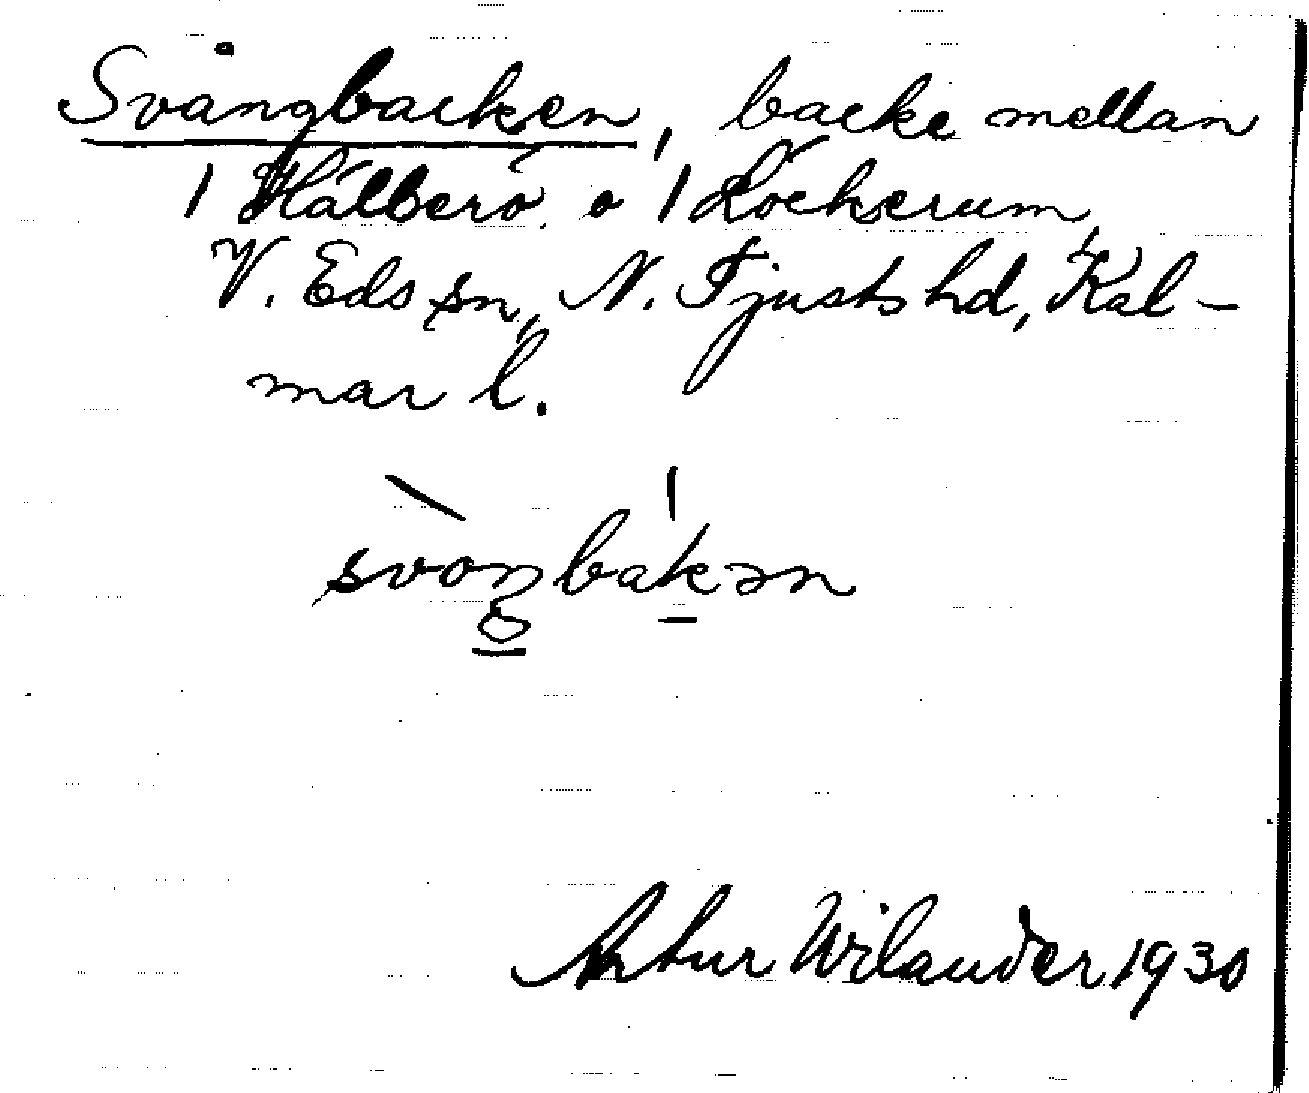 Svångbacken, backe mellan
1 Hålberö o 1 Löckerum,
V. Eds sn, N. Tjusts hd, Kal-
mar l.
svoŋbakən
Artur Wilander 1930